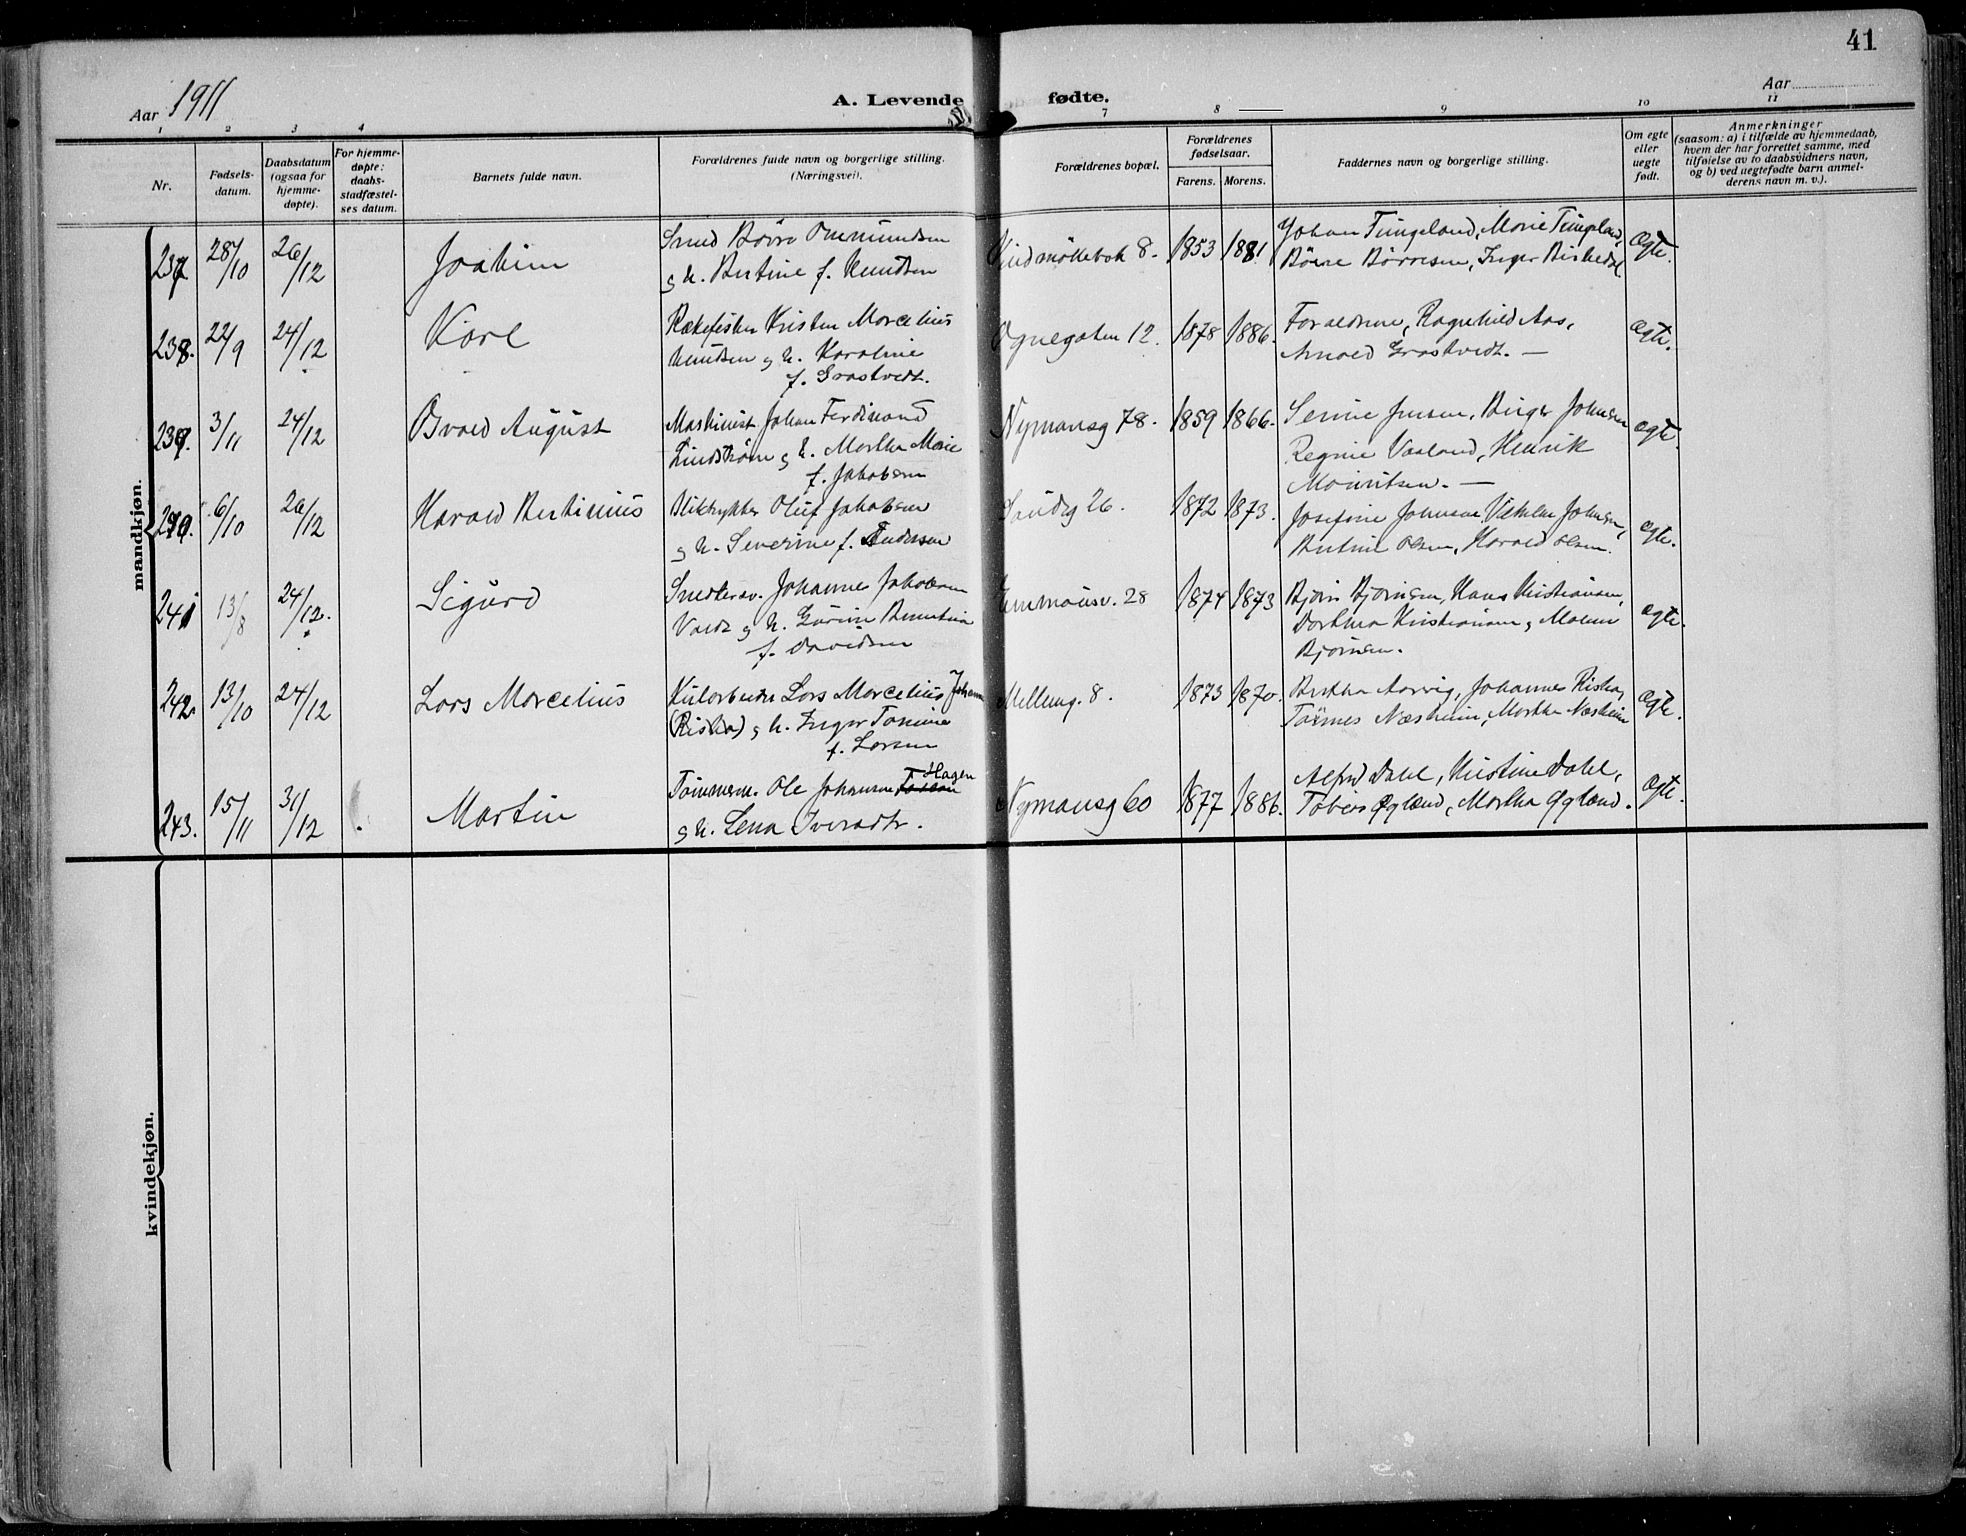 41
Aar 1911
A. Levende fødte.
Aar
1 2 3 4 7 8 9 10 11
Nr.
Fødsels-
datum.
Daabsdatum
(ogsaa for
hjemme-
døpte).
For hjemme-
døpte:
daabs-
stadfæstel-
ses datum.
Barnets fulde navn.
Forældrenes fulde navn og borgerlige stilling.
(Næringsvei).
Forældrenes bopæl.
Forældrenes
fødselsaar.
Farens. Morens.
Faddernes navn og borgerlige stilling.
Om egte
eller
uegte
født.
Anmerkninger
(saasom: a) i tilfælde av hjemmedaab,
hvem der har forrettet samme, med
tilføielse av to daabsvidners navn,
og b) ved uegtefødte barn anmel-
derens navn m. v.).
mandkjøn.
237 28/10 26/12 Joakim
Smed Børre Ommundsen
og h. Bertine f. Knudsen
Vindmøllebak 8. 1853 1881
Johan Tungeland, Marie Tungeland,
Børre Børresen, Inger
egte.
238. 22/9 24/12 Kåre
Kristen Marcelius
Knudsen og h. Karoline
f. Grastvedt.
Ognegaten 12. 1878 1886.
Forældrene, Ragnhild Aas,
Arnold Grastvedt. —
egte.
239. 3/11 24/12 Osvald August
Maskinist Johan Ferdinand
Lindstrøm og h. Martha Marie
f. Jakobsen
Nymansg 78. 1859 1866.
Serine Jensen, Birger Johnsen
Regine Vaaland, Henrik
Mauritsen. —
egte.
240. 6/10 26/12 Harald Bertinius
Bliktrykker Oluf Jakobsen
og h. Severine f. Andersen
Sandg 26. 1872 1873.
Josefine Johnsen, Vilhelm Johnsen,
Bertine Olsen, Harald Olsen.
egte.
241 13/8 24/12. Sigurd
Johannes Jakobsen
og h. Gurine
f. Davidsen
Emmausv. 28 1874 1873
Bjørn Bjørnsen, Hans Kristiansen,
Dorthea Kristiansen og Malene
Bjørnsen.
egte.
242. 13/10 24/12 Lars Marcelius
Lars Marcelius Johann
(Riska) og h. Inger Tomine
f. Larsen
Mellemg. 8. 1873 1870.
Bertha Aarvig, Johannes Riska,
Tønnes Næsheim, Martha Næsheim
egte.
243. 15/11 31/12 Martin
Tømmerm. Ole Johannes Hagen
og h. Lena Iversdtr.
Nymansg 60 1877 1886.
Alfred Dahl, Kristine Dahl,
Tobias Øgland, Martha Øgland.
egte.
kvindekjøn.